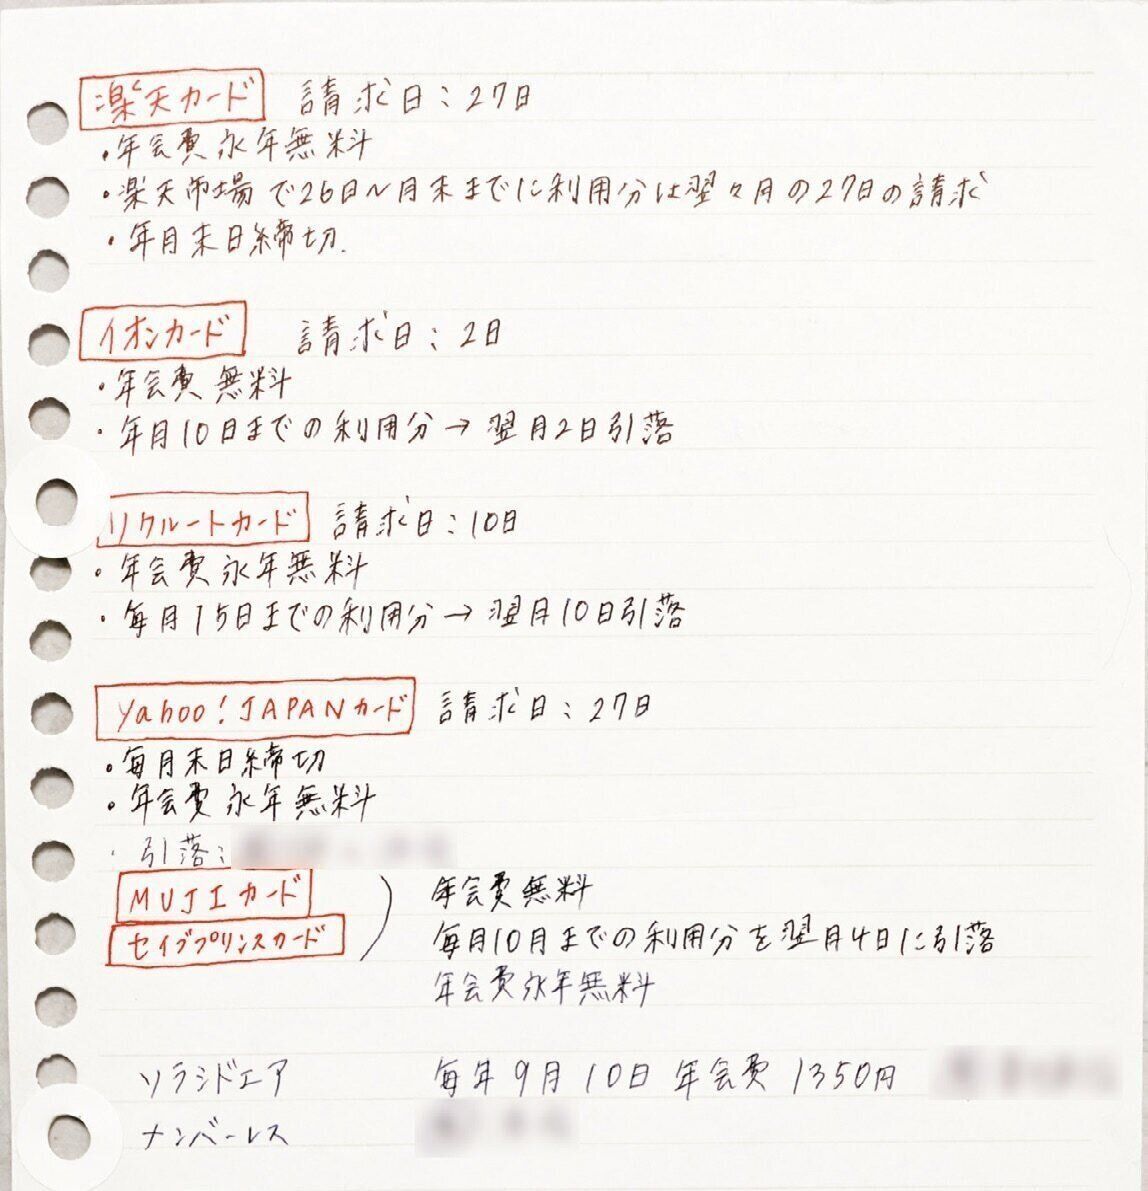 楽天カード 請求日：27日
・年会費永年無料
・楽天市場で26日〜月末までに利用分は翌々月の27日の請求
・年月末日締切.
イオンカード 請求日：2日
・年会費無料
・年月10日までの利用分→翌月2日引落
リクルートカード 請求日：10日
・年会費永年無料
・毎月15日までの利用分→翌月10日引落
Yahoo!JAPANカード 請求日：27日
・毎月末日締切
・年会費永年無料
・引落：
MUJIカード ） 年会費無料
セイブプリンスカード 毎月10月までの利用分を翌月4日に引落
年会費永年無料
ソラシドエア 毎年9月10日 年会費1350円
ナンバーレス